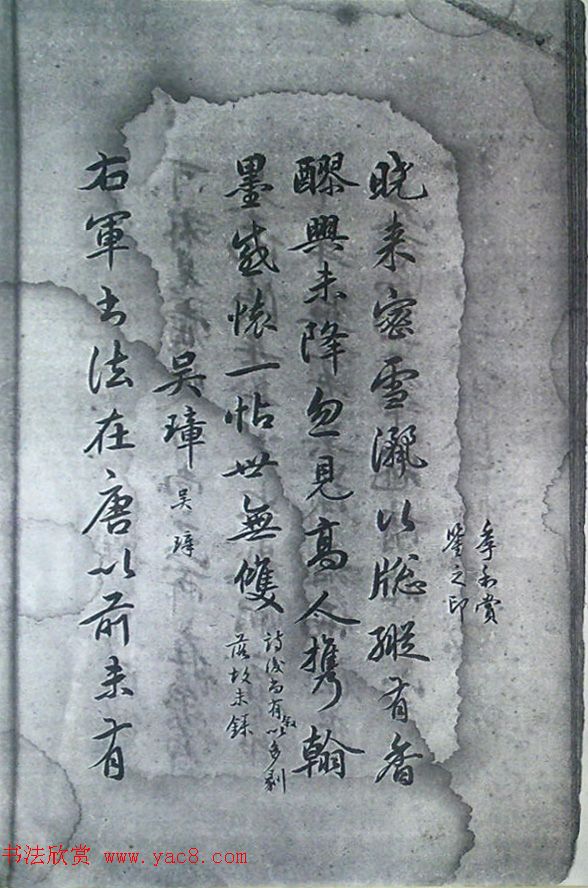 賞
鑒之印
曉来密雪灑以牕縱有香
醪興未降忽見高人携翰
墨感懷一帖世無雙
詩後尚有敘以多剝
落故未錄
吴璋 吴璋
右軍書法在唐以前未有
书法欣赏 www.yac8.com